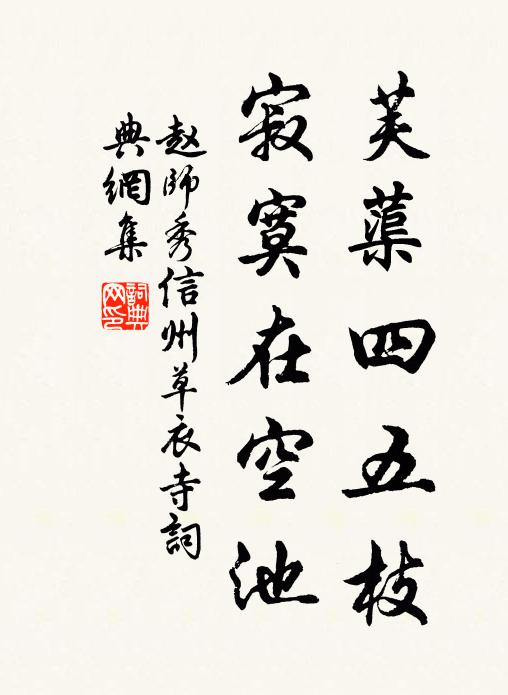 芙蕖四五枝
寂寞在空池
赵師秀信州草衣寺詞
典網集
詞典
网印